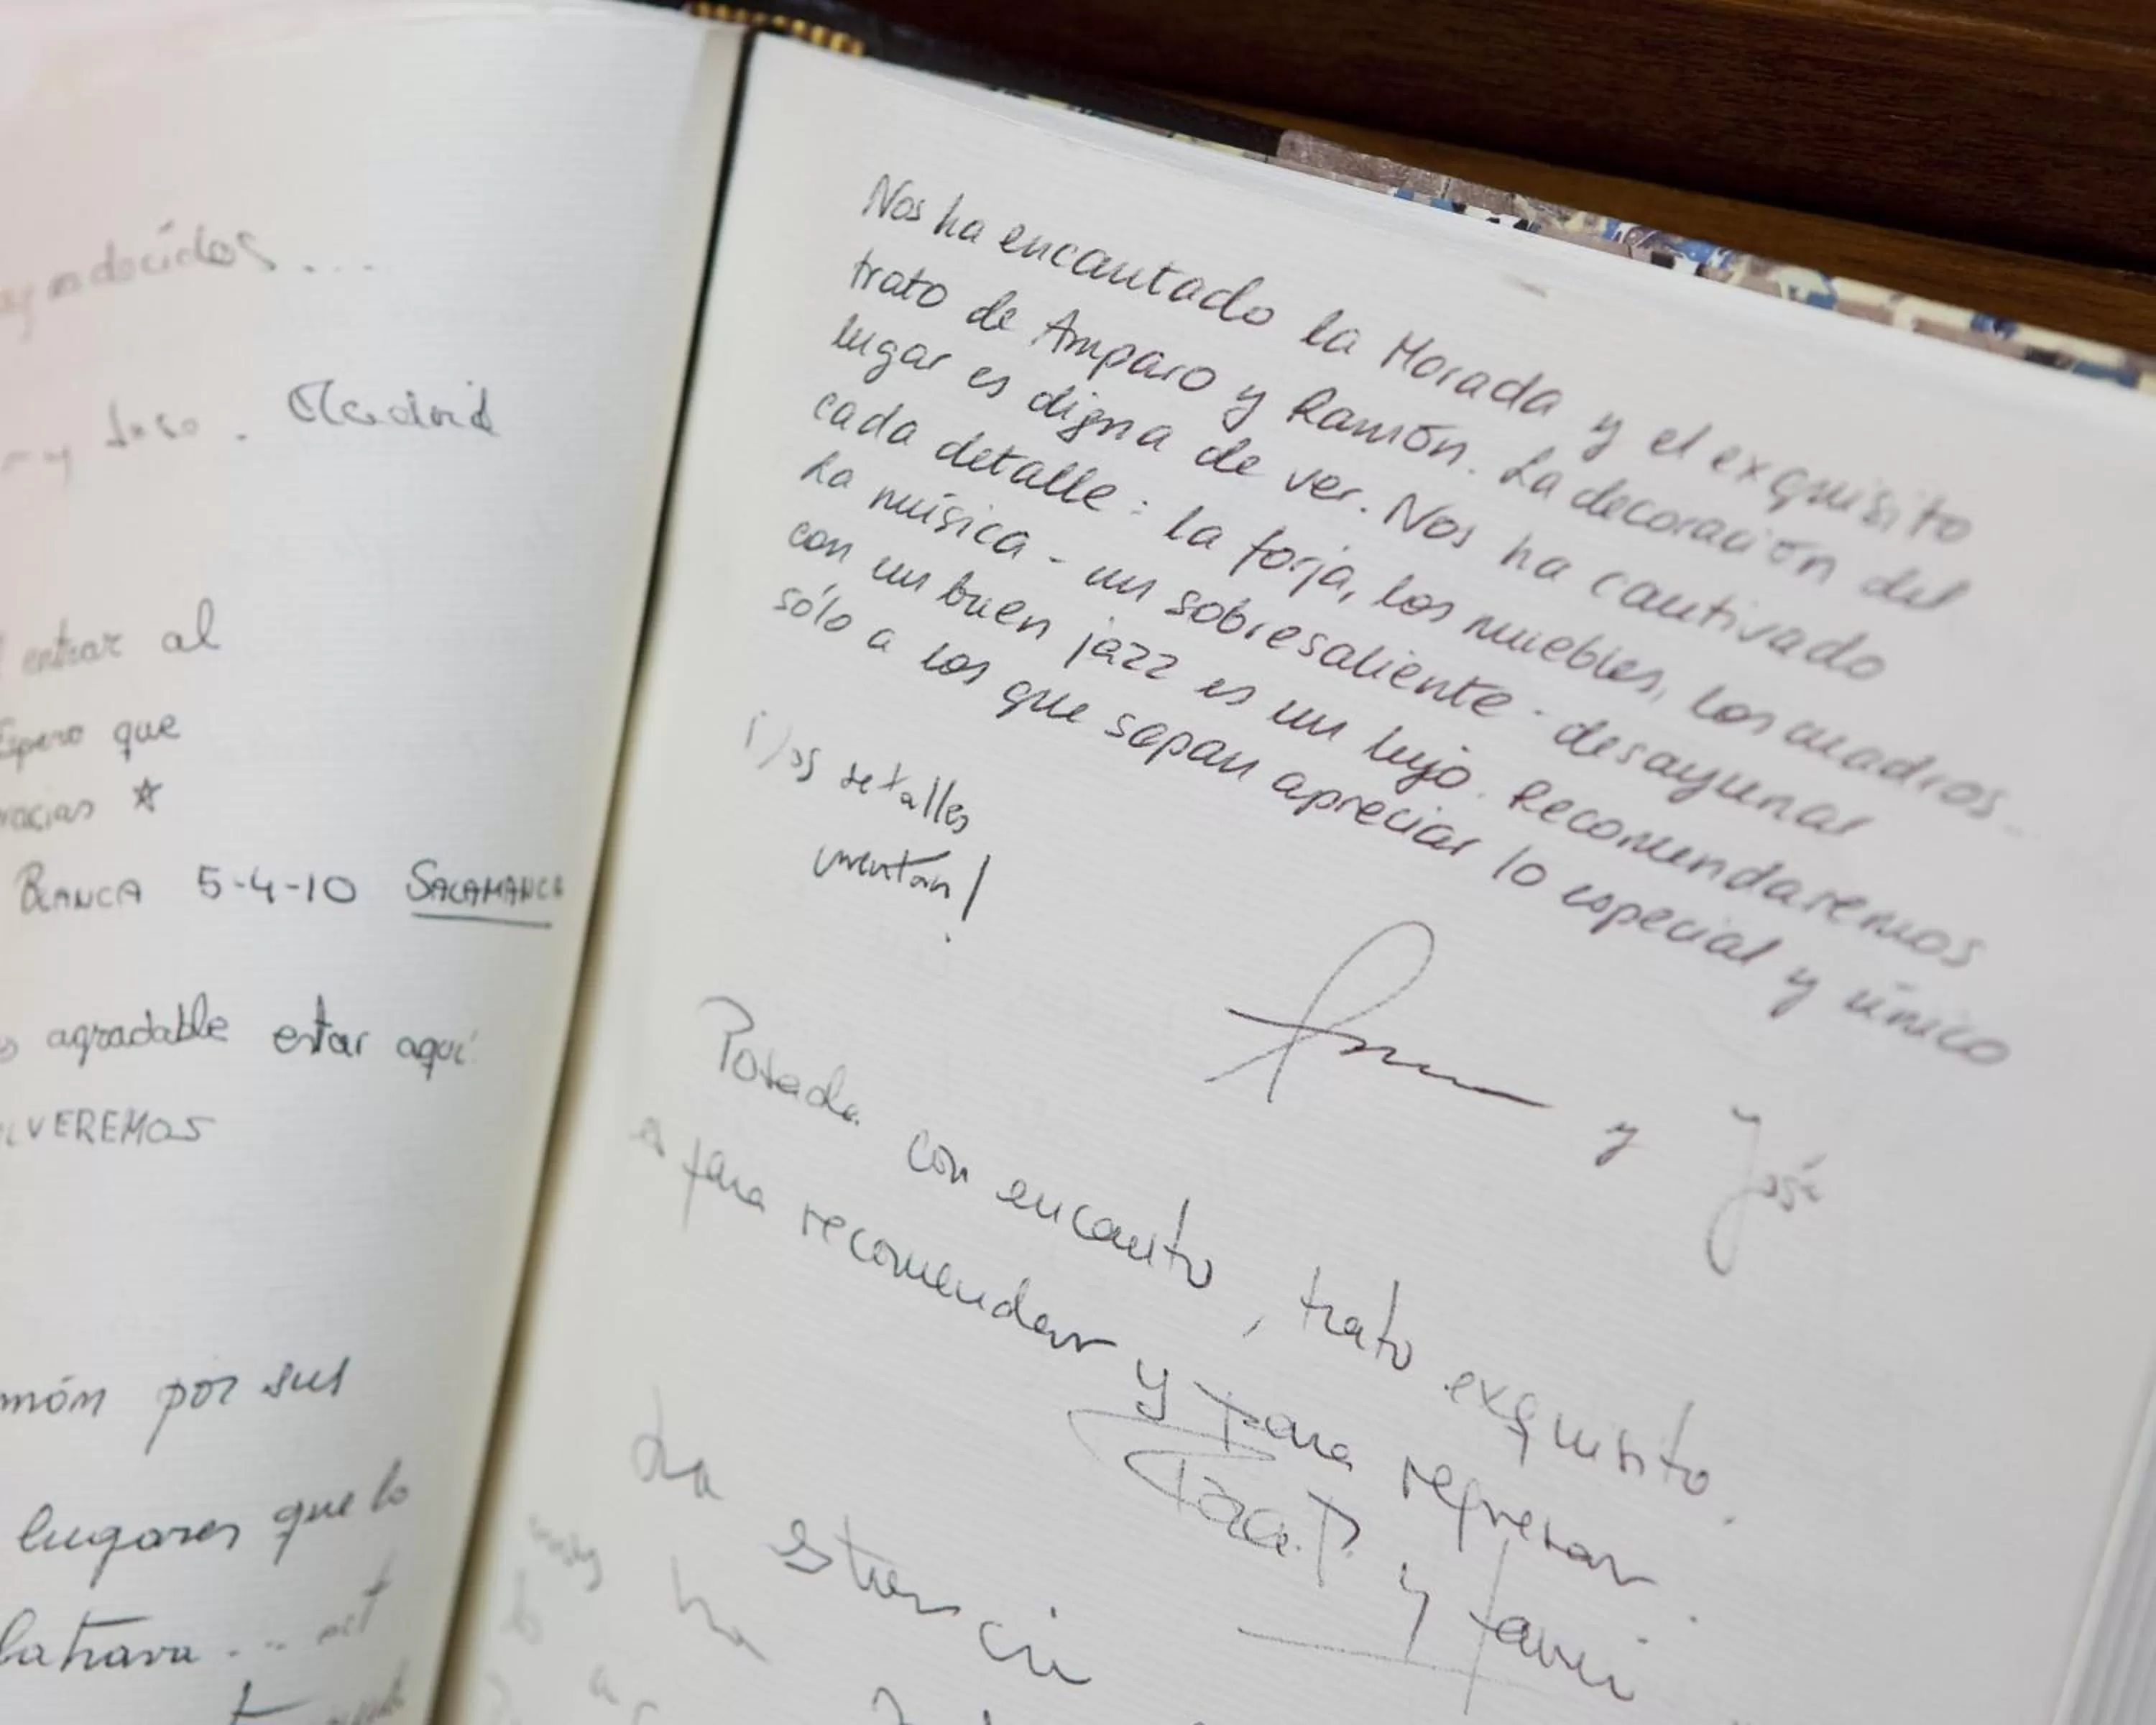 agradecidos...
y Madrid
entrar al
Espero que
gracias ☆
BLANCA 5-4-10 SALAMANCA
agradable estar aquí
VOLVEREMOS
món por sus
lugares que lo
latrava...
Nos ha encantado la Morada y el exquisito
trato de Amparo y Ramón. La decoración del
lugar es digna de ver. Nos ha cautivado
cada detalle: la forja, los muebles, los cuadros...
La música - un sobresaliente - desayunar
con un buen jazz es un lujo. Recomendaremos
sólo a los que sepan apreciar lo especial y único
¡Los detalles
cuentan!
y José
Posada con encanto, trato exquisito.
es para recomendar y para regresar.
y Javi
La estancia